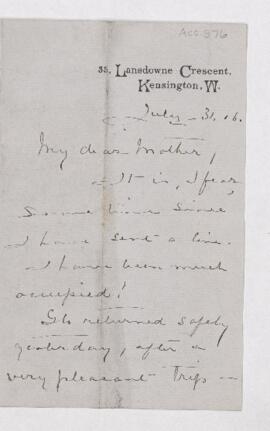 Acc. 876
35, Lansdowne Crescent,
Kensington, W.
July 31. 16.
My dear Mother,
It is, I fear,
some time since
I have sent a line.
I have been much
occupied!
returned safely
yesterday, after a
very pleasant trip —